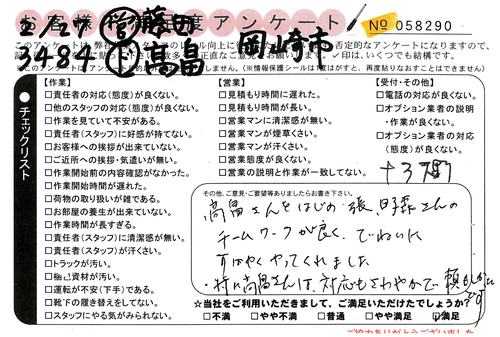 お客様満足度アンケート
No 058290
2/27 営 藤田 岡崎市
3484 下 高畠
このアンケートは
否定的なアンケートになりますので、
正直なご意見をお願いします。✓印は、いくつでも結構です。
(※情報保護シールは1度はがすと、再度貼りなおすことはできません)
チェックリスト
【作業】
□責任者の対応(態度)が良くない。
□他のスタッフの対応(態度)が良くない。
□作業を見ていて不安がある。
□責任者(スタッフ)に好感が持てない。
□お客様への挨拶が出来ていない。
□ご近所への挨拶・気遣いが無い。
□作業開始前の内容確認がなかった。
□作業開始時間が遅れた。
□荷物の取り扱いが雑である。
□お部屋の養生が出来ていない。
□作業時間が長すぎる。
□責任者(スタッフ)に清潔感が無い。
□責任者(スタッフ)が汗くさい。
□トラックが汚い。
□梱包資材が汚い。
□運転が不安(下手)である。
□靴下の履き替えをしてない。
□スタッフにやる気がみられない。
【営業】
□見積もりに遅れた。
□見積もり時間が長い。
□営業マンに清潔感が無い。
□営業マンが煙草くさい。
□営業マンが汗くさい。
□営業態度が良くない。
□営業の説明と作業が一致してない。
【受付・その他】
□電話の対応が良くない。
□オプション業者の説明
・作業が良くない。
□オプション業者の対応
(態度)が良くない。
その他、ご意見・ご要望等ありましたらお書き下さい。
高畠さんをはじめ、張、野森さんの
チームワークが良く、ていねいに
すばやくやってくれました。
・特に高畠さんは、対応もさわやかで頼もしかったです
☆当社をご利用いただきまして、ご満足いただけたでしょうか?
□不満 □やや不満 □普通 □やや満足 ☑満足
ご協力ありがとうございました